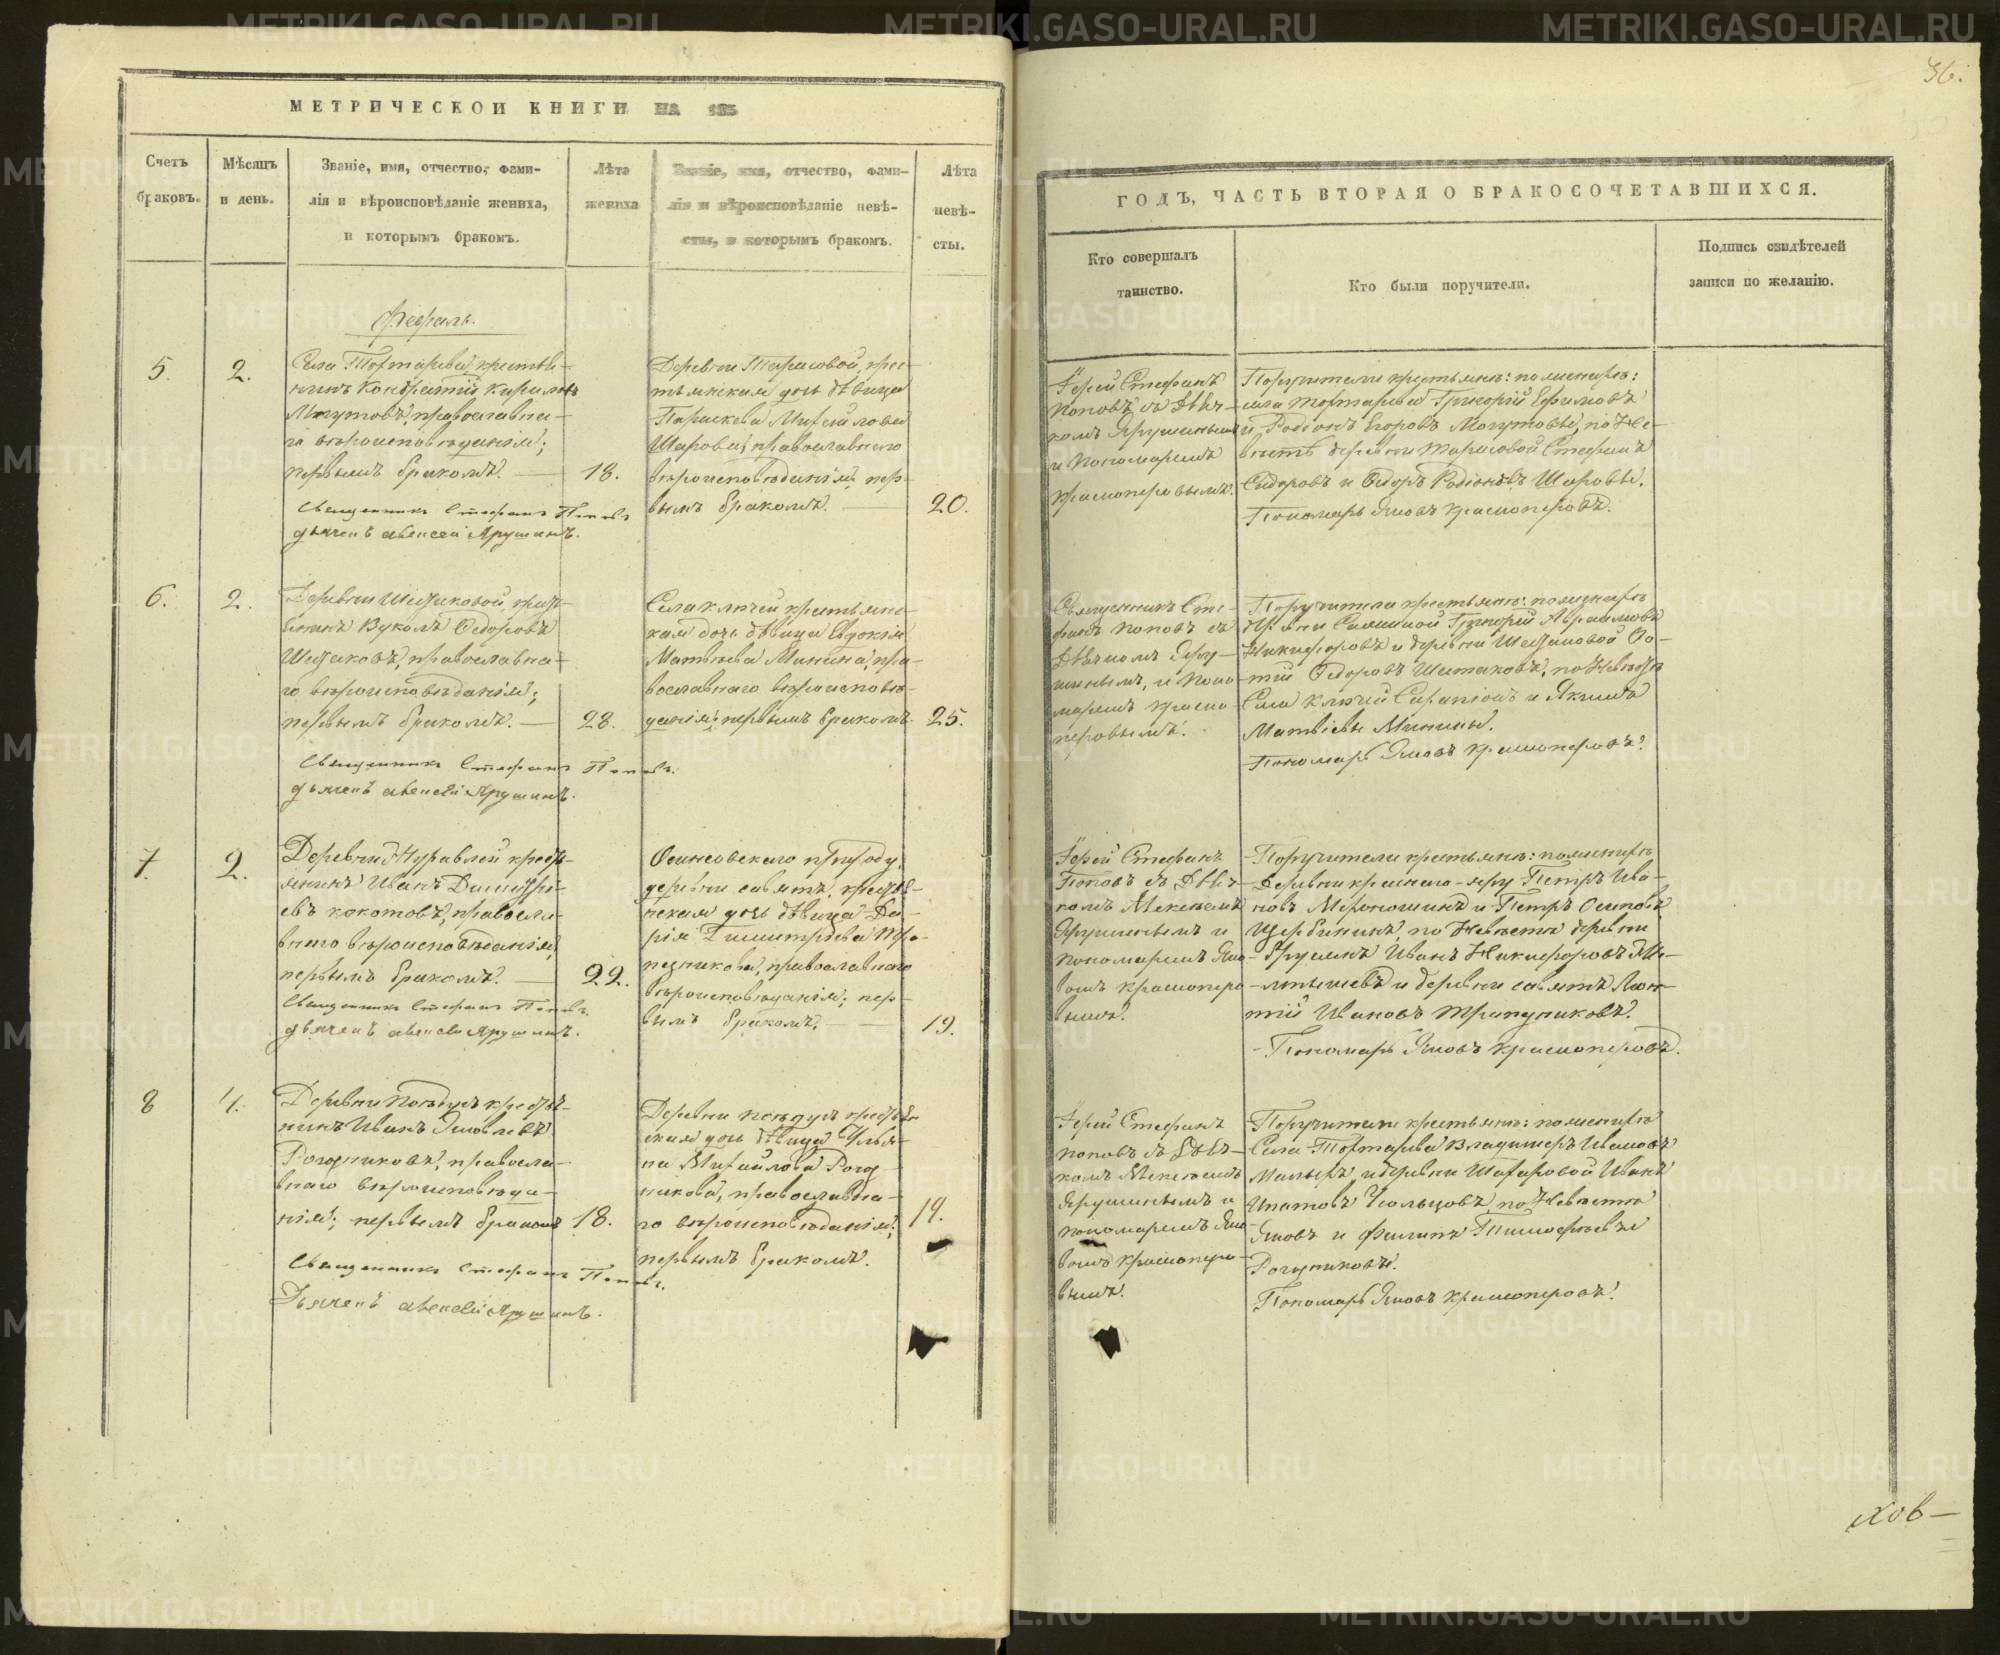 МЕТРИЧЕСКОЙ КНИГИ НА 185
Счетъ браковъ.
Мѣсяцъ и день.
Званіе, имя, отчество, фами-
лія и вѣроисповѣданіе жениха,
и которымъ бракомъ.
Лѣта жениха
Званіе, имя, отчество, фами-
лія и вѣроисповѣданіе невѣ-
сты, и которымъ бракомъ.
Лѣта невѣ-
сты.
Февраль.
5.
2.
Села Тохтарева крестья-
нинъ Кондратій Кирилловъ
православна-
го вѣроисповѣданія;
первымъ бракомъ.
18.
Священникъ Стефанъ Поповъ
дьячекъ Алексей Ярушинъ.
Деревни Тарасовой, крес-
тьянская дочь дѣвица
Параскева Михайлова
Шарова, православнаго
вѣроисповѣданія, пер-
вымъ бракомъ.
20.
6.
2.
Деревни Шутаковой, крестья-
нинъ Вуколъ Ѳедоровъ
православна-
го вѣроисповѣданія;
первымъ бракомъ.
28.
Священникъ Стефанъ Поповъ.
дьячекъ Алексей Ярушинъ.
Села Ключей крестьянс-
кая дочь дѣвица Евдокія
Матвѣева Минина, пра-
вославнаго вѣроисповѣ-
данія, первымъ бракомъ.
25.
7.
2.
Деревни Журавлей крестья-
янинъ Иванъ Димитрі-
евъ Кокотовъ, правосла-
внаго вѣроисповѣданія,
первымъ бракомъ.
22.
Священникъ Стефанъ Поповъ.
дьячекъ Алексей Ярушинъ.
Осинсовскаго приходу,
деревни крестья-
нская дочь дѣвица Да-
рія Димитріева Тра-
пезникова, православнаго
вѣроисповѣданія; пер-
вымъ бракомъ.
19.
8
4.
Деревни крестья-
нинъ Иванъ Яковлевъ
Рогозниковъ, правосла-
внаго вѣроисповѣда-
нія; первымъ бракомъ
18.
Священникъ Стефанъ Поповъ.
Дьячекъ Алексей Ярушинъ.
Деревни крестья-
нская дочь дѣвица Улья-
на Михайлова Рогоз-
никова, православна-
го вѣроисповѣданія;
первымъ бракомъ.
19.
36.
ГОДЪ, ЧАСТЬ ВТОРАЯ О БРАКОСОЧЕТАВШИХСЯ.
Кто совершалъ
таинство.
Кто были поручители.
Подпись свидѣтелей
записи по желанію.
Іерей Стефанъ
Поповъ съ дьяч-
комъ Ярушинымъ
и пономаремъ
Красноперовымъ.
Поручители крестьяне: по женихѣ:
села Тохтарева Григорій Ефимовъ
и Родіонъ Егоровъ по не-
вѣстѣ деревни Тарасовой Стефанъ
Сидоровъ и Ѳедоръ Родіоновъ Шаровы.
Пономарь Яковъ Красноперовъ.
Священникъ Сте-
фанъ Поповъ съ
дьячкомъ Яру-
шинымъ, и поно-
маремъ Красно-
перовымъ.
Поручители крестьяне: по женихѣ
Григорій Абрамовъ
Никифоровъ и деревни
Ѳедоровъ по невѣстѣ
Села Ключей и Якимъ
Матвѣевы Минины.
Пономарь Яковъ Красноперовъ.
Іерей Стефанъ
Поповъ съ дьяч-
комъ Алексеемъ
Ярушинымъ и
пономаремъ Яко-
вомъ Красноперо-
вымъ.
Поручители крестьяне: по женихѣ
деревни Краснаго-яру Петръ Ива-
новъ и Петръ Осиповъ
Щербинины, по невѣстѣ деревни
Иванъ Никифоровъ
и деревни
Ивановъ Трапезниковъ.
Пономарь Яковъ Красноперовъ.
Іерей Стефанъ
Поповъ съ дьяч-
комъ Алексеемъ
Ярушинымъ и
пономаремъ Яко-
вомъ Красноперо-
вымъ.
Поручители крестьяне: по женихѣ
Села Тохтарева Владимеръ Ивановъ
и деревни Иванъ
Ипатовъ по невѣстѣ
Яковъ и Филипъ Тимофѣевы
Рогозниковы.
Пономарь Яковъ Красноперовъ.
ков—
METRIKI.GASO-URAL.RU